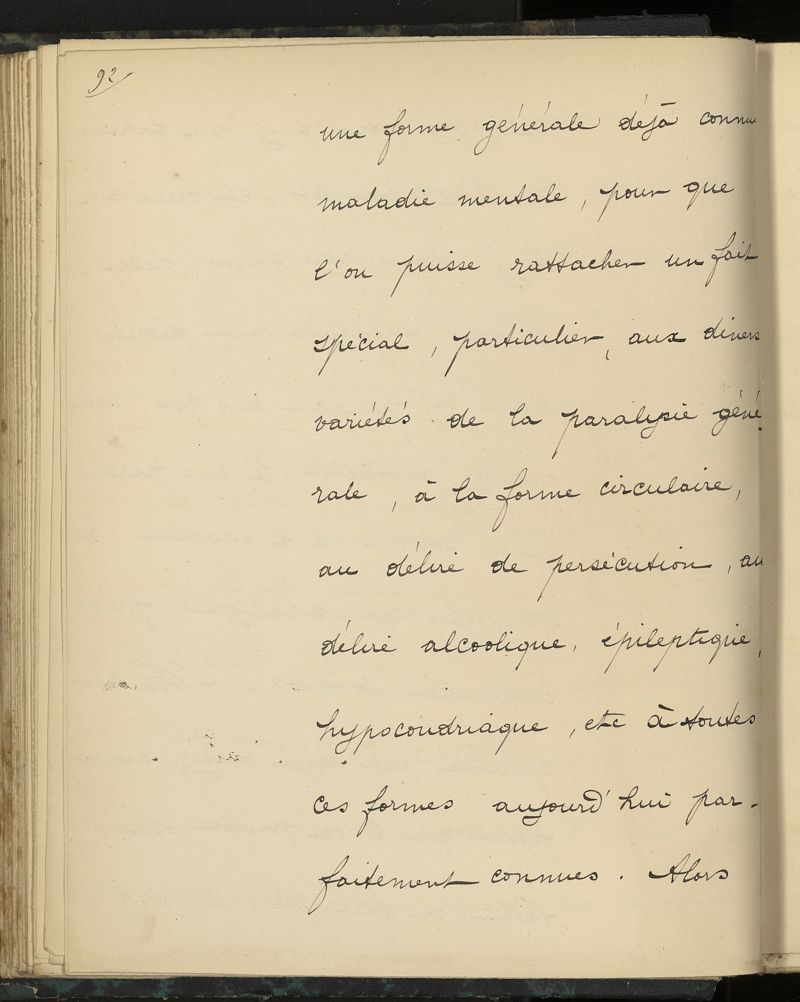 92
une forme générale déjà connu
maladie mentale, pour que
l'on puisse rattacher un fait
spécial, particulier, aux divers
variétés de la paralysie géné
rale, à la forme circulaire,
au délire de persécution, au
délire alcoolique, épileptique,
hypocondriaque, etc à toutes
ces formes aujourd'hui par-
faitement connues. Alors